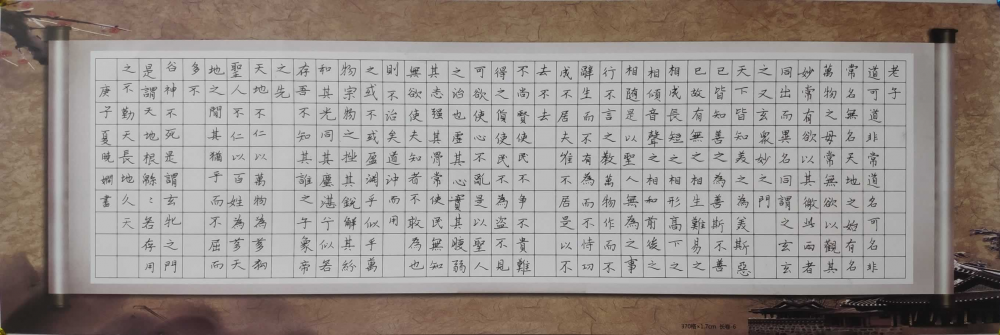 老子
道可道非常道名可名非
常名無名天地之始有名
萬物之母常無欲以觀其
妙常有欲以其徼此兩者
同出而異名同謂之玄玄
之又玄眾妙之門
天下皆知美之為美斯惡
已皆知善之為善斯不善
已故有無之相生難易之
相成長短之相形高下之
相傾音聲之相和前後之
相隨是以聖人無為之事
行不言之教萬物作而不
辭生而不有為而不恃功
成不居夫唯不居是以不
去不去
不尚賢使民不爭不貴難
得之貨使民不為盜不見
可欲使心不亂是以聖人
之治也虛其心實其腹弱
其志強其骨常使民無知
無欲使夫知者不敢為也
則不治矣道沖而用
之或不盈淵乎似乎萬
物宗物之挫其銳解其紛
和其光同其塵湛兮似若
存吾不知其誰之子象帝
之先
天地不仁以萬物為芻狗
聖人不仁以百姓為芻天
地之間其猶乎而不屈而
多不
谷神不死是謂玄牝之門
是謂天地根綿:若存用
之不勤天長地久天
庚子夏曉嫻書